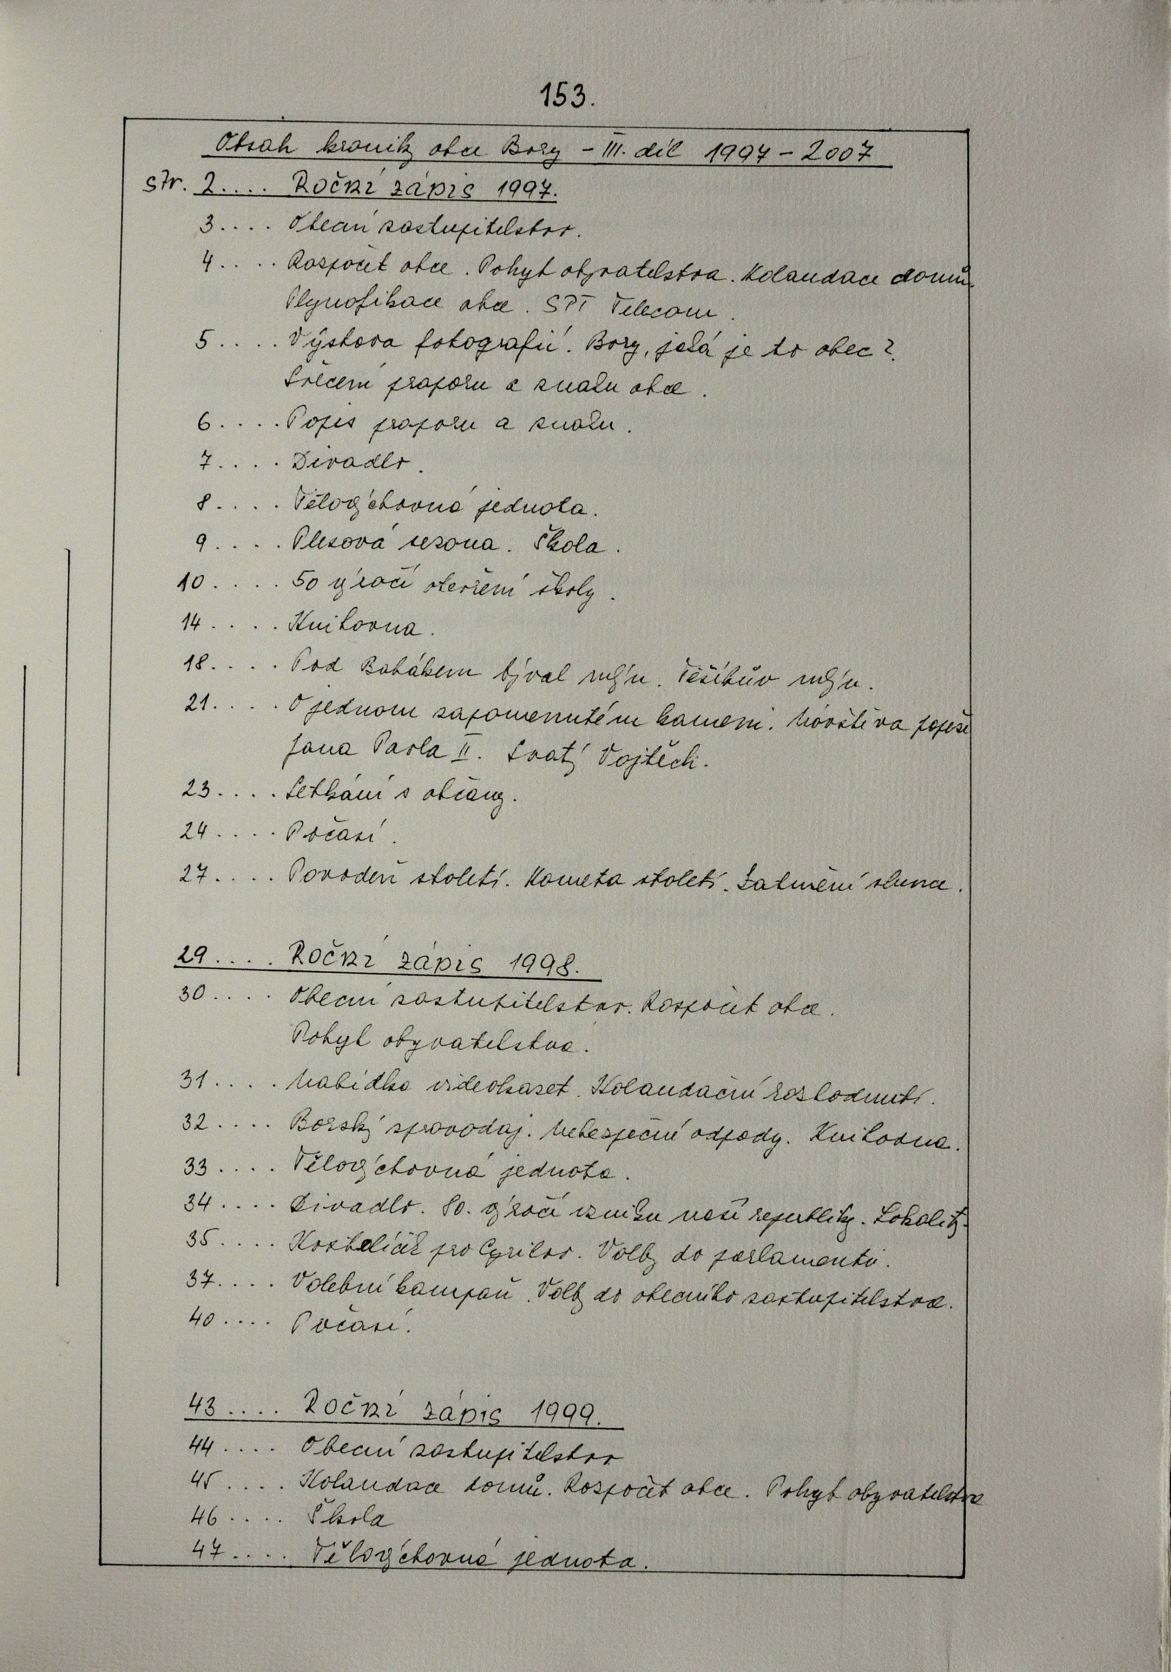 153.
Obsah kroniky obce Bory – III. díl 1997 – 2007
str. 2.... Roční zápis 1997.
3.... Obecní zastupitelstvo.
4.... Rozpočet obce. Pohyb obyvatelstva. Kolaudace domů.
Plynofikace obce. SPT Telecom.
5.... Výstava fotografií. Bory, jaká je to obec?
Svěcení praporu a znaku obce.
6.... Popis praporu a znaku.
7.... Divadlo.
8.... Tělovýchovná jednota.
9.... Plesová sezona. Škola.
10.... 50 výročí otevření školy.
14.... Knihovna.
18.... Pod Babákem býval mlýn. Těšíkův mlýn.
21.... O jednom zapomenutém kameni. Návštěva papeže
Jana Pavla II. Svatý Vojtěch.
23.... Setkání s občany.
24.... Počasí.
27.... Povodeň století. Kometa století. Zatmění slunce.
29.... Roční zápis 1998.
30.... Obecní zastupitelstvo. Rozpočet obce.
Pohyb obyvatelstva.
31.... Nabídka videokazet. Kolaudační rozhodnutí.
32.... Borský zpravodaj. Nebezpečné odpady. Knihovna.
33.... Tělovýchovná jednota.
34.... Divadlo. 80. výročí vzniku naší republiky. Lokality.
35.... Kostelíček pro Cyrilov. Volby do parlamentu.
37.... Volební kampaň. Volby do obecního zastupitelstva.
40.... Počasí.
43.... Roční zápis 1999.
44.... Obecní zastupitelstvo
45.... Kolaudace domů. Rozpočet obce. Pohyb obyvatelstva
46.... Škola
47.... Tělovýchovná jednota.